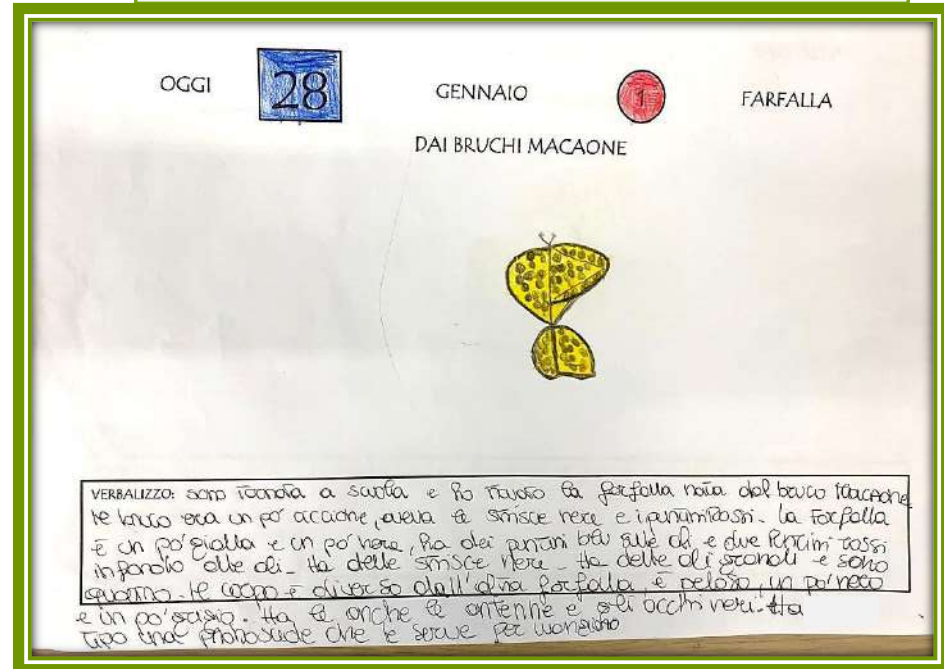 OGGI 28 GENNAIO 1 FARFALLA
DAI BRUCHI MACAONE
VERBALIZZO: sono tornata a scuola e ho trovato la farfalla nata dal bruco Macaone
il bruco era un po' aveva le strisce nere e i puntini Rossi. la Farfalla
è un po' gialla e un po' nera, ha dei puntini blu sulle ali e due puntini rossi
in fondo alle ali. Ha delle strisce nere. Ha delle ali grandi e sono
quattro. il corpo è diverso dall'altra farfalla, è peloso, un po' nero
e un po' grigio. Ha le anche le antenne e gli occhi neri. Ha
tipo una che le serve per mangiare